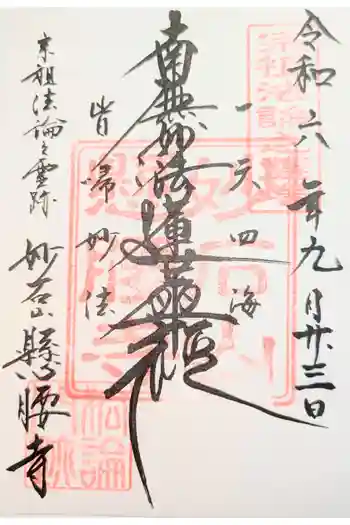 令和六年九月廿三日
一天四海
南無妙法蓮華経
皆帰妙法
宗祖法論之霊跡
妙石山懸腰寺